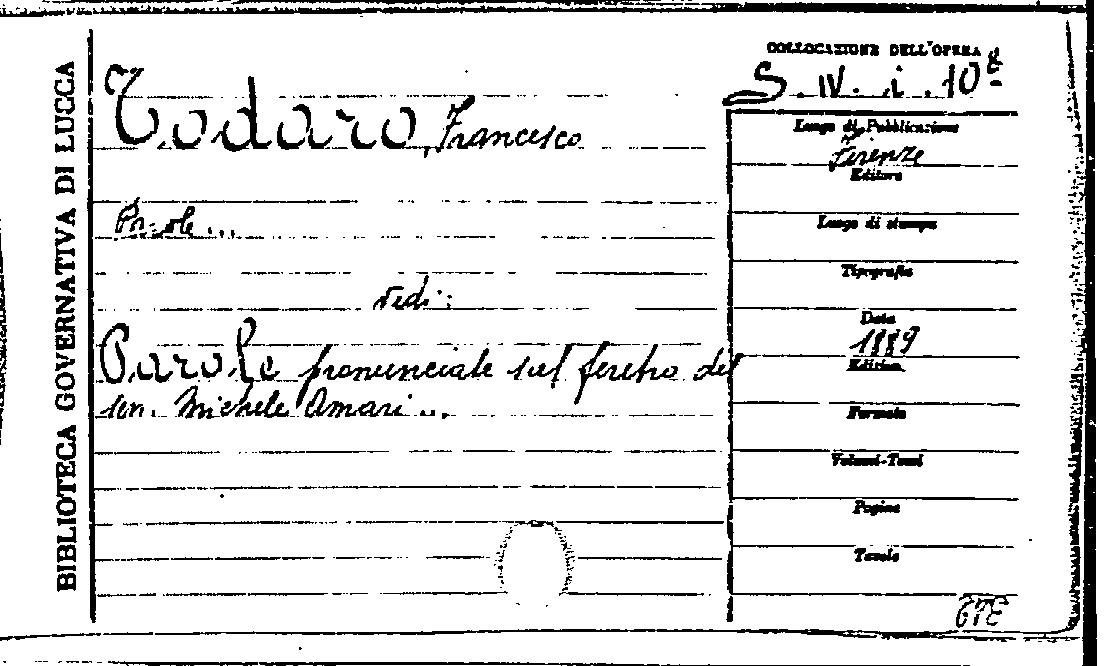 BIBLIOTECA GOVERNATIVA DI LUCCA
Todaro, Francesco
Parole...
vedi:
Parole pronunciate sul feretro del
sen. Michele Amari...
COLLOCAZIONE DELL'OPERA
S. IV. i. 10⁸
Luogo di Pubblicazione
Firenze
Editore
Luogo di stampa
Tipografia
Data
1889
Edizione
Formato
Volumi-Tomi
Pagine
Tavole